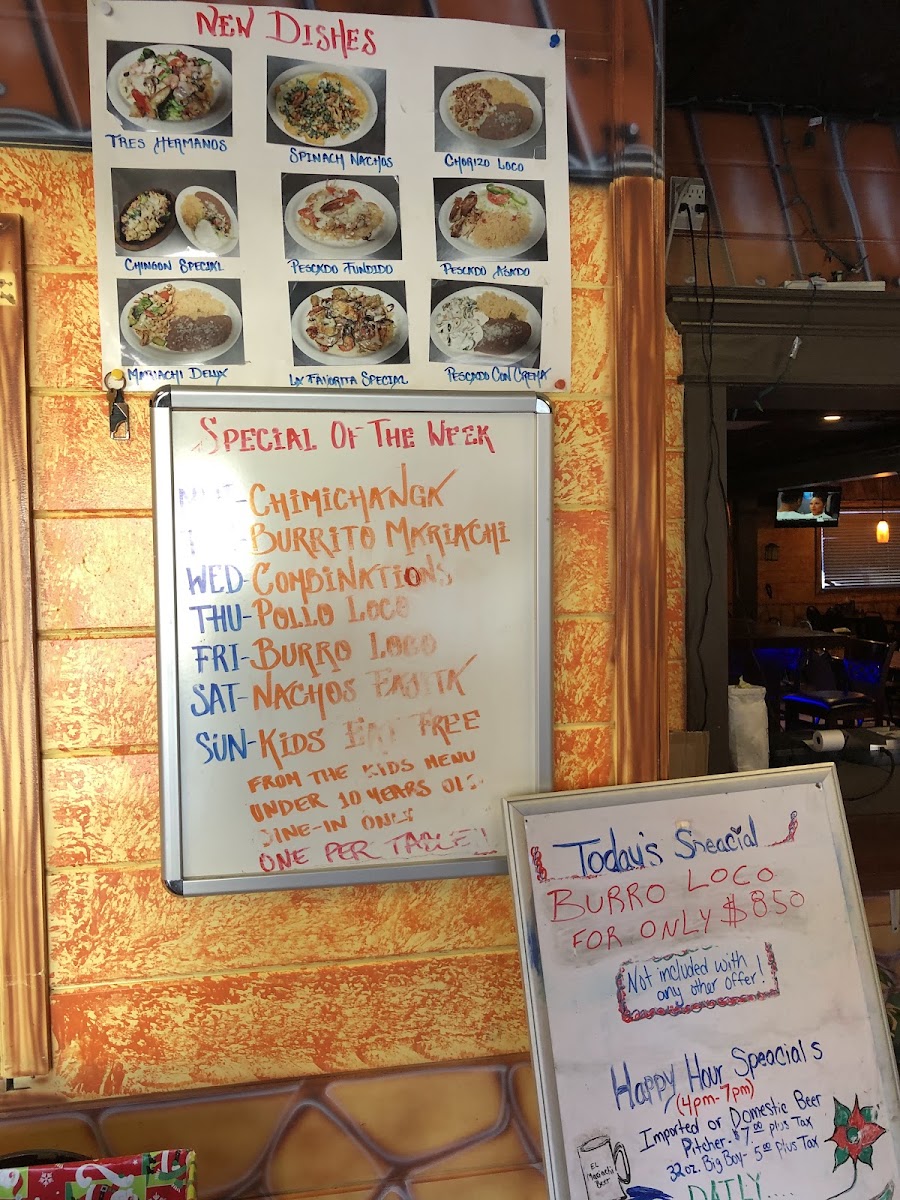 NEW DISHES
TRES HERMANOS
SPINACH NACHOS
CHORIZO LOCO
CHINGON SPECIAL
PESCADO FUNDIDO
PESCADO ASADO
MARIACHI DELUX
LA FAVORITA SPECIAL
PESCADO CON CREMA
SPECIAL OF THE WEEK
CHIMICHANGA
BURRITO MARIACHI
WED-COMBINATIONS
THU-POLLO LOCO
FRI-BURRO LOCO
SAT-NACHOS FAJITA
SUN-KIDS EAT FREE
FROM THE KIDS MENU
UNDER 10 YEARS OLD
DINE-IN ONLY
ONE PER TABLE!!
Today's Speacial
BURRO LOCO
FOR ONLY $8.50
Not included with
any other offer!
Happy Hour Speacials
(4pm-7pm)
Imported or Domestic Beer
Pitcher-$7.00 plus Tax
32oz. Big Boy- 5.00 plus Tax
EL
Mariachi
Beer
DAILY...